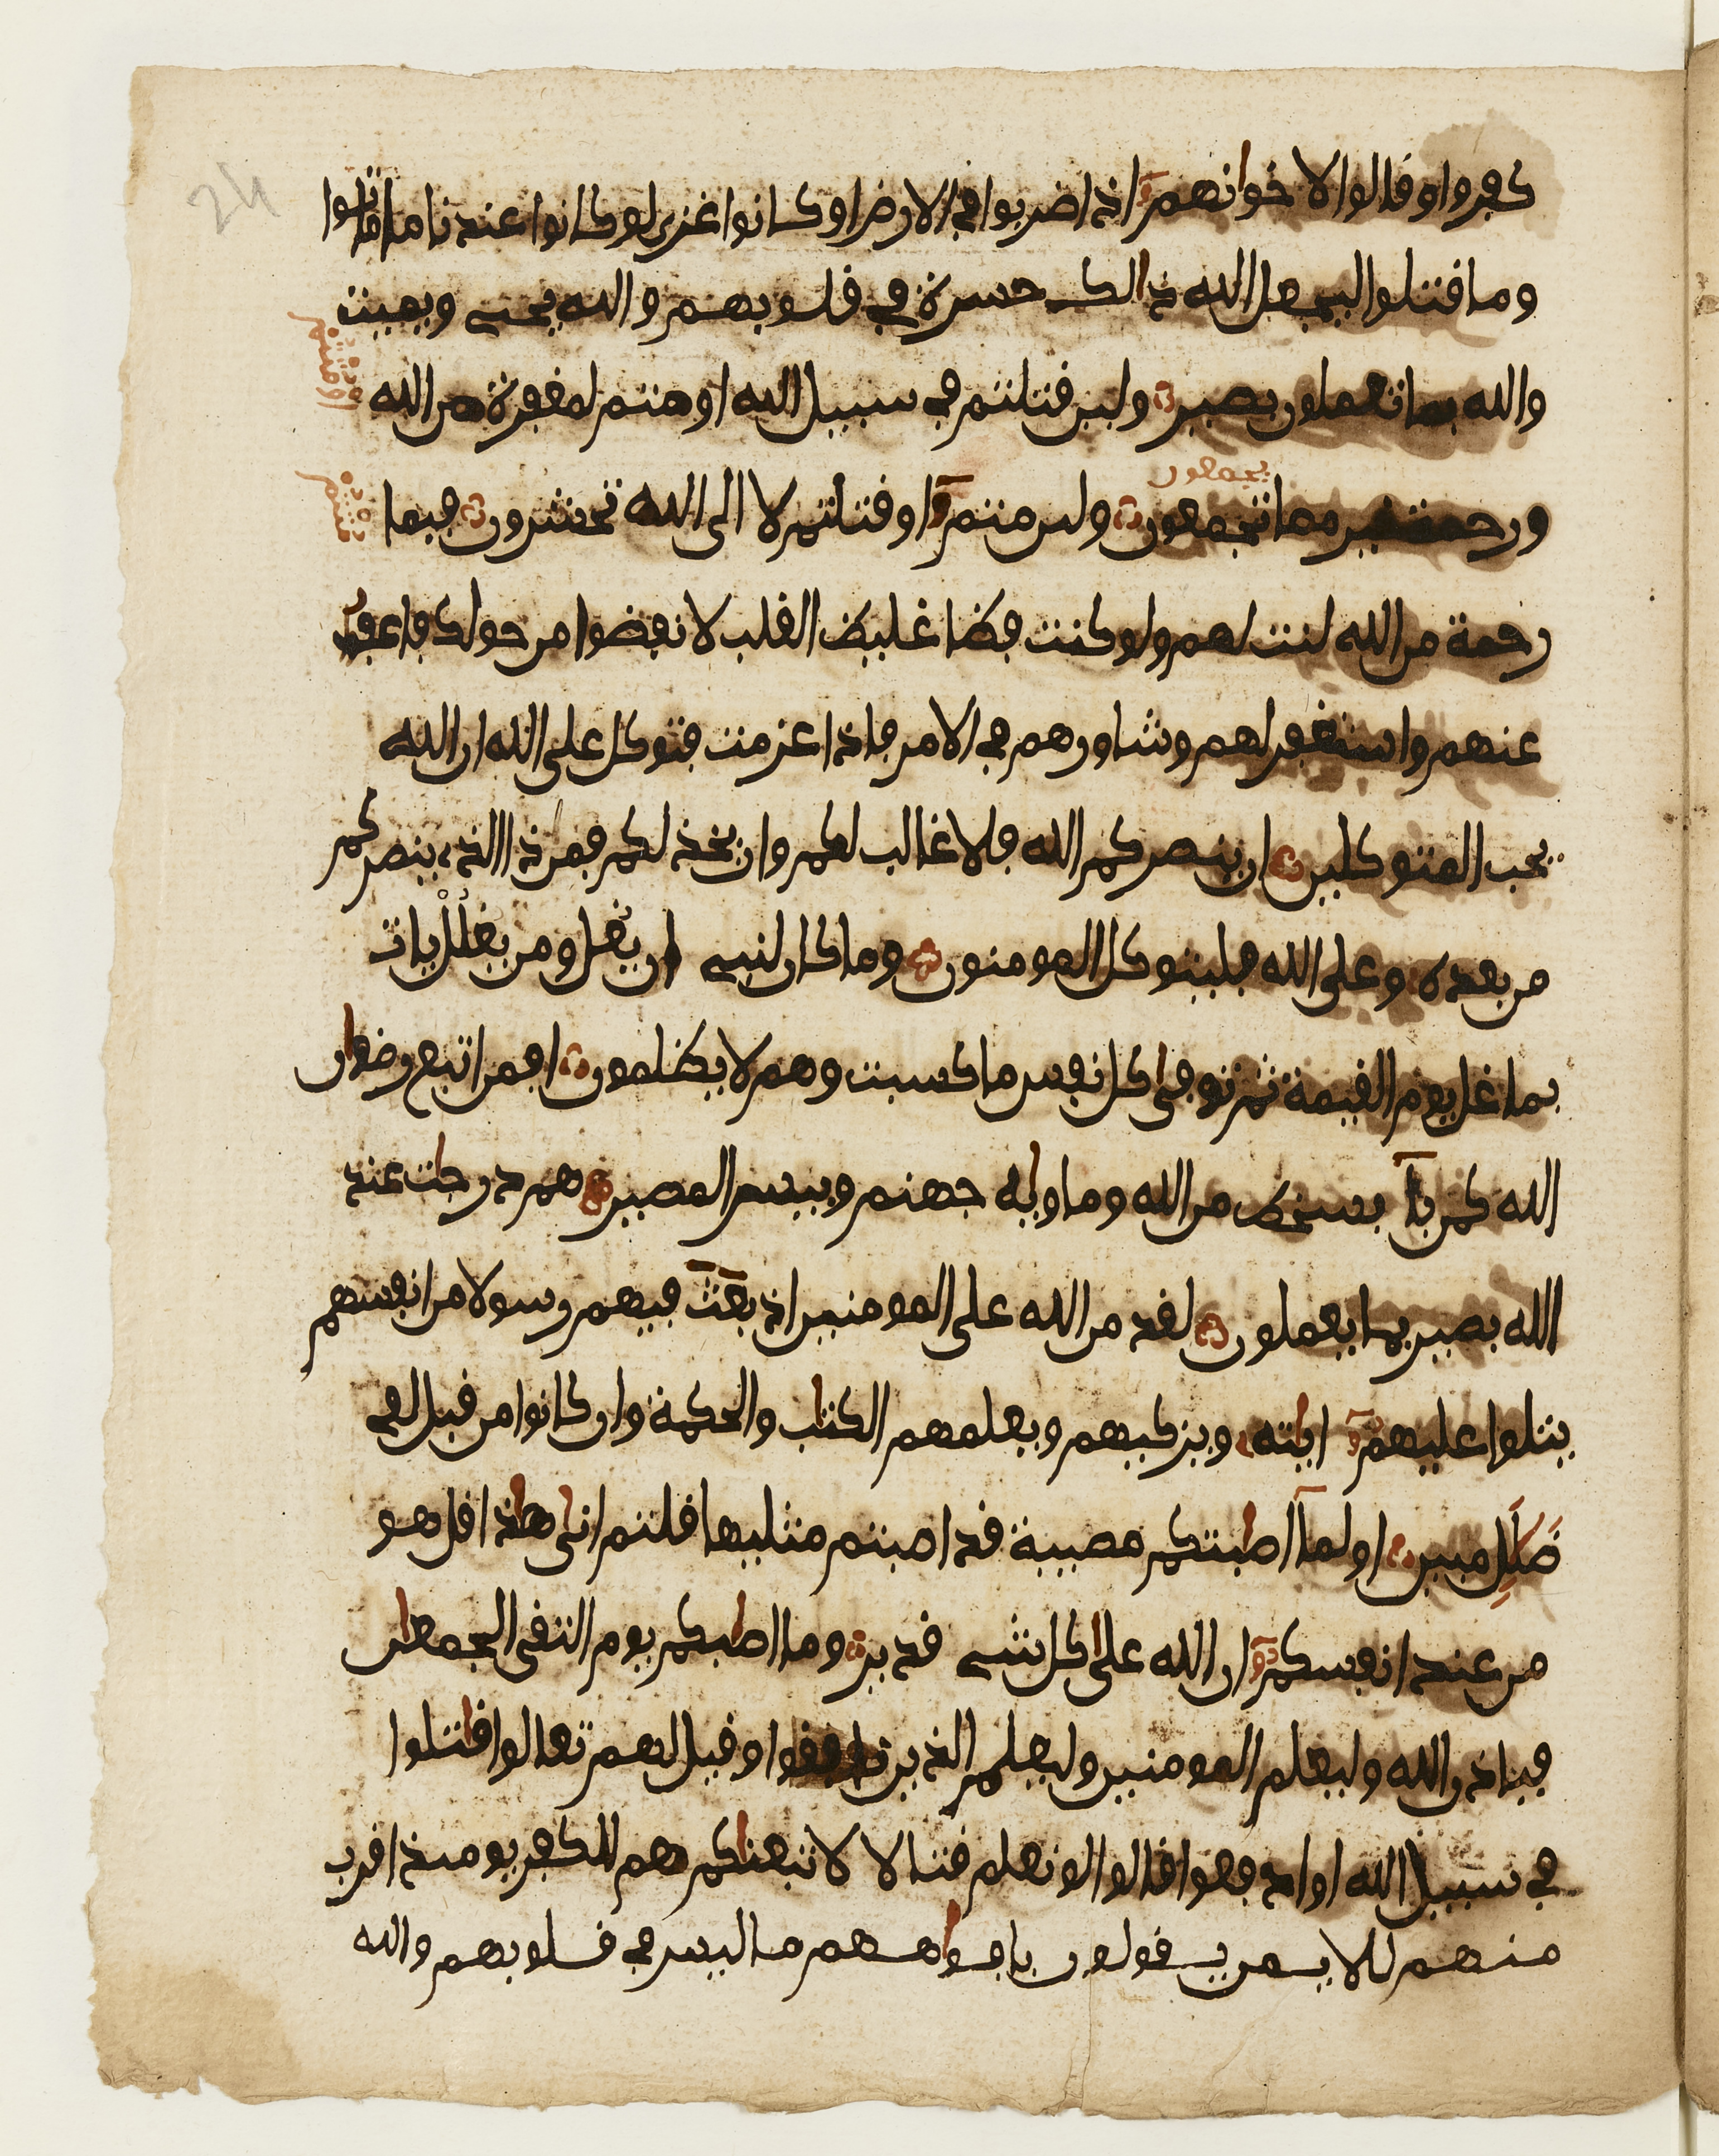 كفروا وقالوا لاخوانهم اذا ضربوا في الارض او كانوا غزى لو كانوا عندنا ما ماتوا
وما قتلوا ليجعل الله ذالك حسرة في قلوبهم والله يحيي ويميت
والله بما تعملون بصير ولين قتلتم في سبيل الله او متم لمغفرة من الله
ورحمة خير مما تجمعون ولين متم او قتلتم لا الى الله تحشرون فبما
رحمة من الله لنت لهم ولو كنت فظا غليظ القلب لانفضوا من حولك فاعف
عنهم واستغفر لهم وشاورهم في الامر فاذا عزمت فتوكل على الله ان الله
يحب المتوكلين ان ينصركم الله فلا غالب لكم وان يخذلكم فمن ذا الذي ينصركم
من بعده وعلى الله فليتوكل المومنون وما كان لنبي ان يغل ومن يغلل يات
بما غل يوم القيمة ثم توفى كل نفس ما كسبت وهم لا يظلمون افمن اتبع رضوان
الله كمن بآ بسخط من الله وماويه جهنم وبيس المصير هم درجات عند
الله بصير بما يعملون لقد من الله على المومنين اذ بعث فيهم رسولا من انفسهم
يتلوا عليهم ايته ويزكيهم ويعلمهم الكتاب والحكمة وان كانوا من قبل لفي
ضَلَلٍ مبين اولمآ اصابتكم مصيبة قد اصبتم مثليها قلتم انى هاذا قل هو
من عند انفسكم ان الله على كل شي قدير وما اصابكم يوم التقى الجمعان
فباذن الله وليعلم المومنين وليعلم الذين نافقوا وقيل لهم تعالوا قاتلوا
في سبيل الله او ادفعوا قالوا لو نعلم قتالا لاتبعناكم هم للكفر يوميذ اقرب
منهم للايمن يقولون بافواههم ما ليس في قلوبهم والله
تجمعون
24